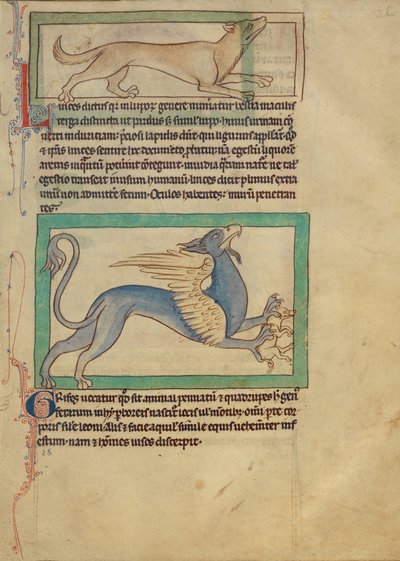 Linces dictus qr in luporū genere numatur bestia maculis
terga distincta ut pardus s; similis lupo. huius urinam con
uerti in duriciam preciosi lapidis dicunt. qui ligurius appellatur. qd
& ipsas linces sentire hoc documento probatur. nā egestū liquorē
arenis inquantū potuerint contegunt. inuidia quadam nature ne talis
egestio transeat in usum humanū. linces dicit plinius extra
unum non admittere fetum. Oculos habentes murum penetran
tes.
Grifes uocatur qd sit animal pennatū & quadrupes. hoc genus
ferarum in hyperboreis nascitur locis uel montibus. omni parte cor
poris simile leoni. Alis & facie aquile simile. equis uehementer inf
estum. nam & homines uisos discerpit.